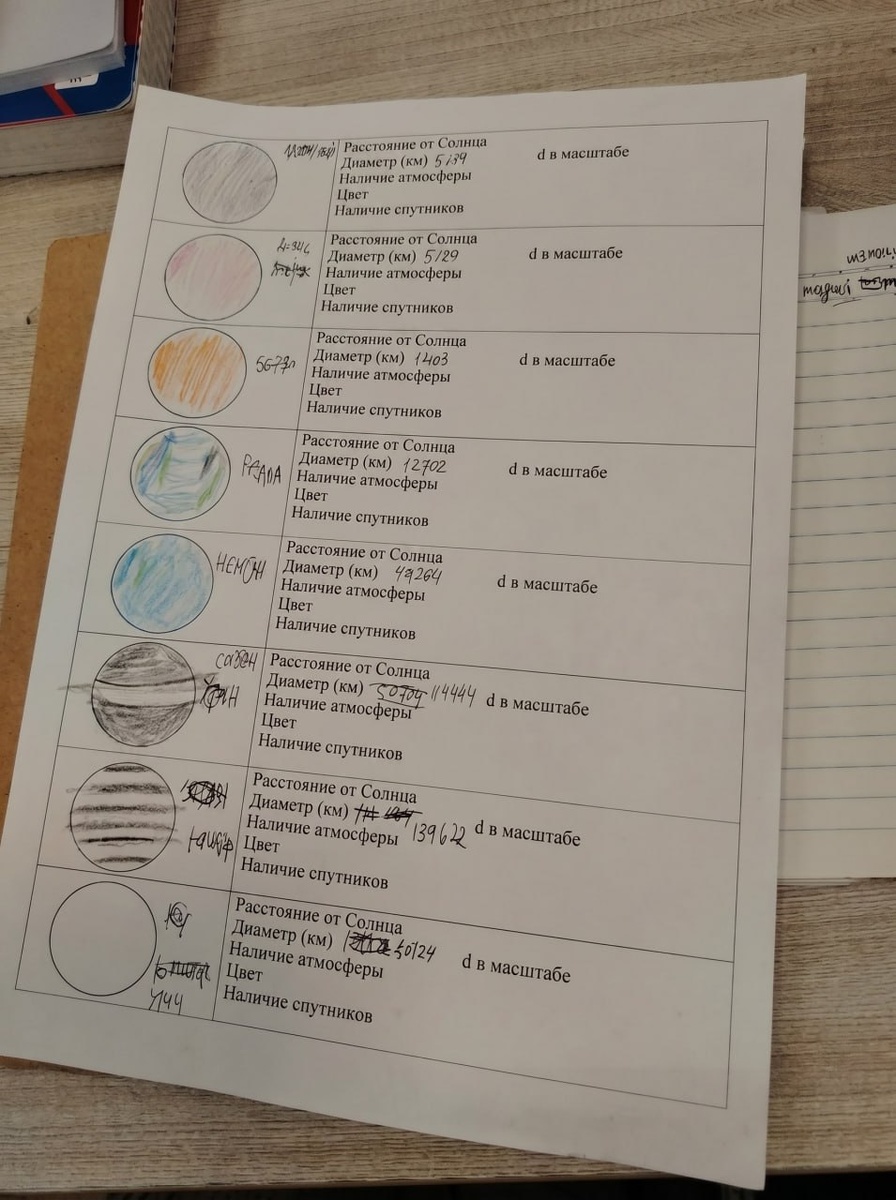 Расстояние от Солнца
Диаметр (км) 5139 d в масштабе
Наличие атмосферы
Цвет
Наличие спутников
Расстояние от Солнца
Диаметр (км) 5129 d в масштабе
Наличие атмосферы
Цвет
Наличие спутников
Расстояние от Солнца
Диаметр (км) 1403 d в масштабе
Наличие атмосферы
Цвет
Наличие спутников
Расстояние от Солнца
Диаметр (км) 12702 d в масштабе
Наличие атмосферы
Цвет
Наличие спутников
Расстояние от Солнца
Диаметр (км) d в масштабе
Наличие атмосферы
Цвет
Наличие спутников
Расстояние от Солнца
Диаметр (км) 114444 d в масштабе
Наличие атмосферы
Цвет
Наличие спутников
Расстояние от Солнца
Диаметр (км) 139622 d в масштабе
Наличие атмосферы
Цвет
Наличие спутников
Расстояние от Солнца
Диаметр (км) 50124 d в масштабе
Наличие атмосферы
Цвет
Наличие спутников